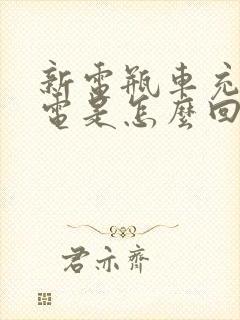 新電瓶車充
電是怎麼回
君亦齊